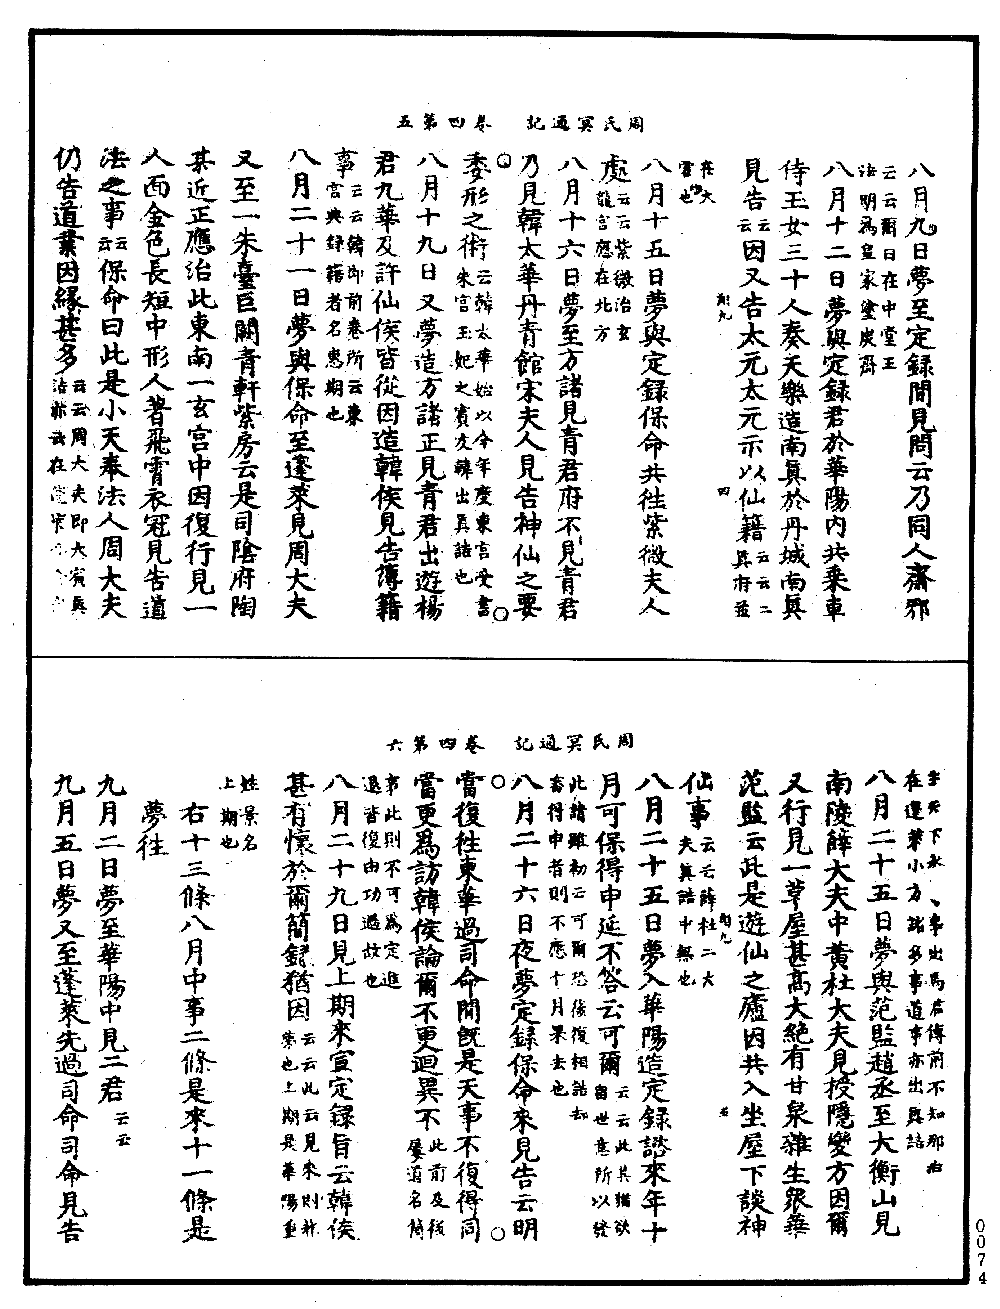 周氏冥通記　卷四第五
八月九日夢至定錄間見問云乃同人齋耶
云云爾日在中堂王
法明爲皇家塗炭齋
八月十二日夢與定錄君於華陽內共乘車
侍玉女三十人奏天樂造南眞於丹城南眞
見告云云因又告太元太元示以仙籍云云二眞府並
在大霍也
八月十五日夢與定錄保命共往紫微夫人
處云云紫微治玄隴宮應在北方
八月十六日夢至方諸見青君府不見青君
乃見韓太華丹青館宋夫人見告神仙之要
委形之術云韓太華始以今年慶東宮受書
朱宮玉妃之賓友韓出眞誥也
八月十九日又夢造方諸正見青君出遊楊
君九華及許仙侯皆從因造韓侯見告簿籍
事云云韓即前卷所云東宮典錄籍者名惠期也
八月二十一日夢與保命至蓬萊見周大夫
又至一朱臺巨闕青軒紫房云是司陰府陶
某近正應治此東南一玄宮中因復行見一
人面金色長短中形人著飛霄衣冠見告道
法之事云云保命曰此是小天奉法人周大夫
仍告道業因緣甚多云云周大夫即大賓眞
誥亦云在
周氏冥通記　卷四第六
事出馬君傳前不知那治
在蓬萊小方諸多事道事亦出眞誥
八月二十五日夢與范監趙丞至大衡山見
南陵薛大夫中黃杜大夫見授隱變方因爾
又行見一草屋甚高大絕有甘泉雜生衆華
范監云此是遊仙之廬因共入坐屋下談神
仙事云云薛杜二大夫眞誥中無也
八月二十五日夢入華陽造定錄諮來年十
月可保得申延不答云可爾云云此某猶欲留世意所以發
此請雖初云可爾恐後復相誥知
審得申者則不應十月果去也
八月二十六日夜夢定錄保命來見告云明
當復往東華過司命間旣是天事不復得同
當更爲訪韓侯論爾不更迴異不此前及後屢道名簡
事此則不可爲定進
退皆復由功過故也
八月二十九日見上期來宣定錄旨云韓侯
甚有懷於爾簡錄猶因云云此云見來則非夢也上期是華陽童
姓景名
上期也
右十三條八月中事二條是來十一條是
夢往
九月二日夢至華陽中見二君云云
九月五日夢又至蓬萊先過司命司命見告
0074